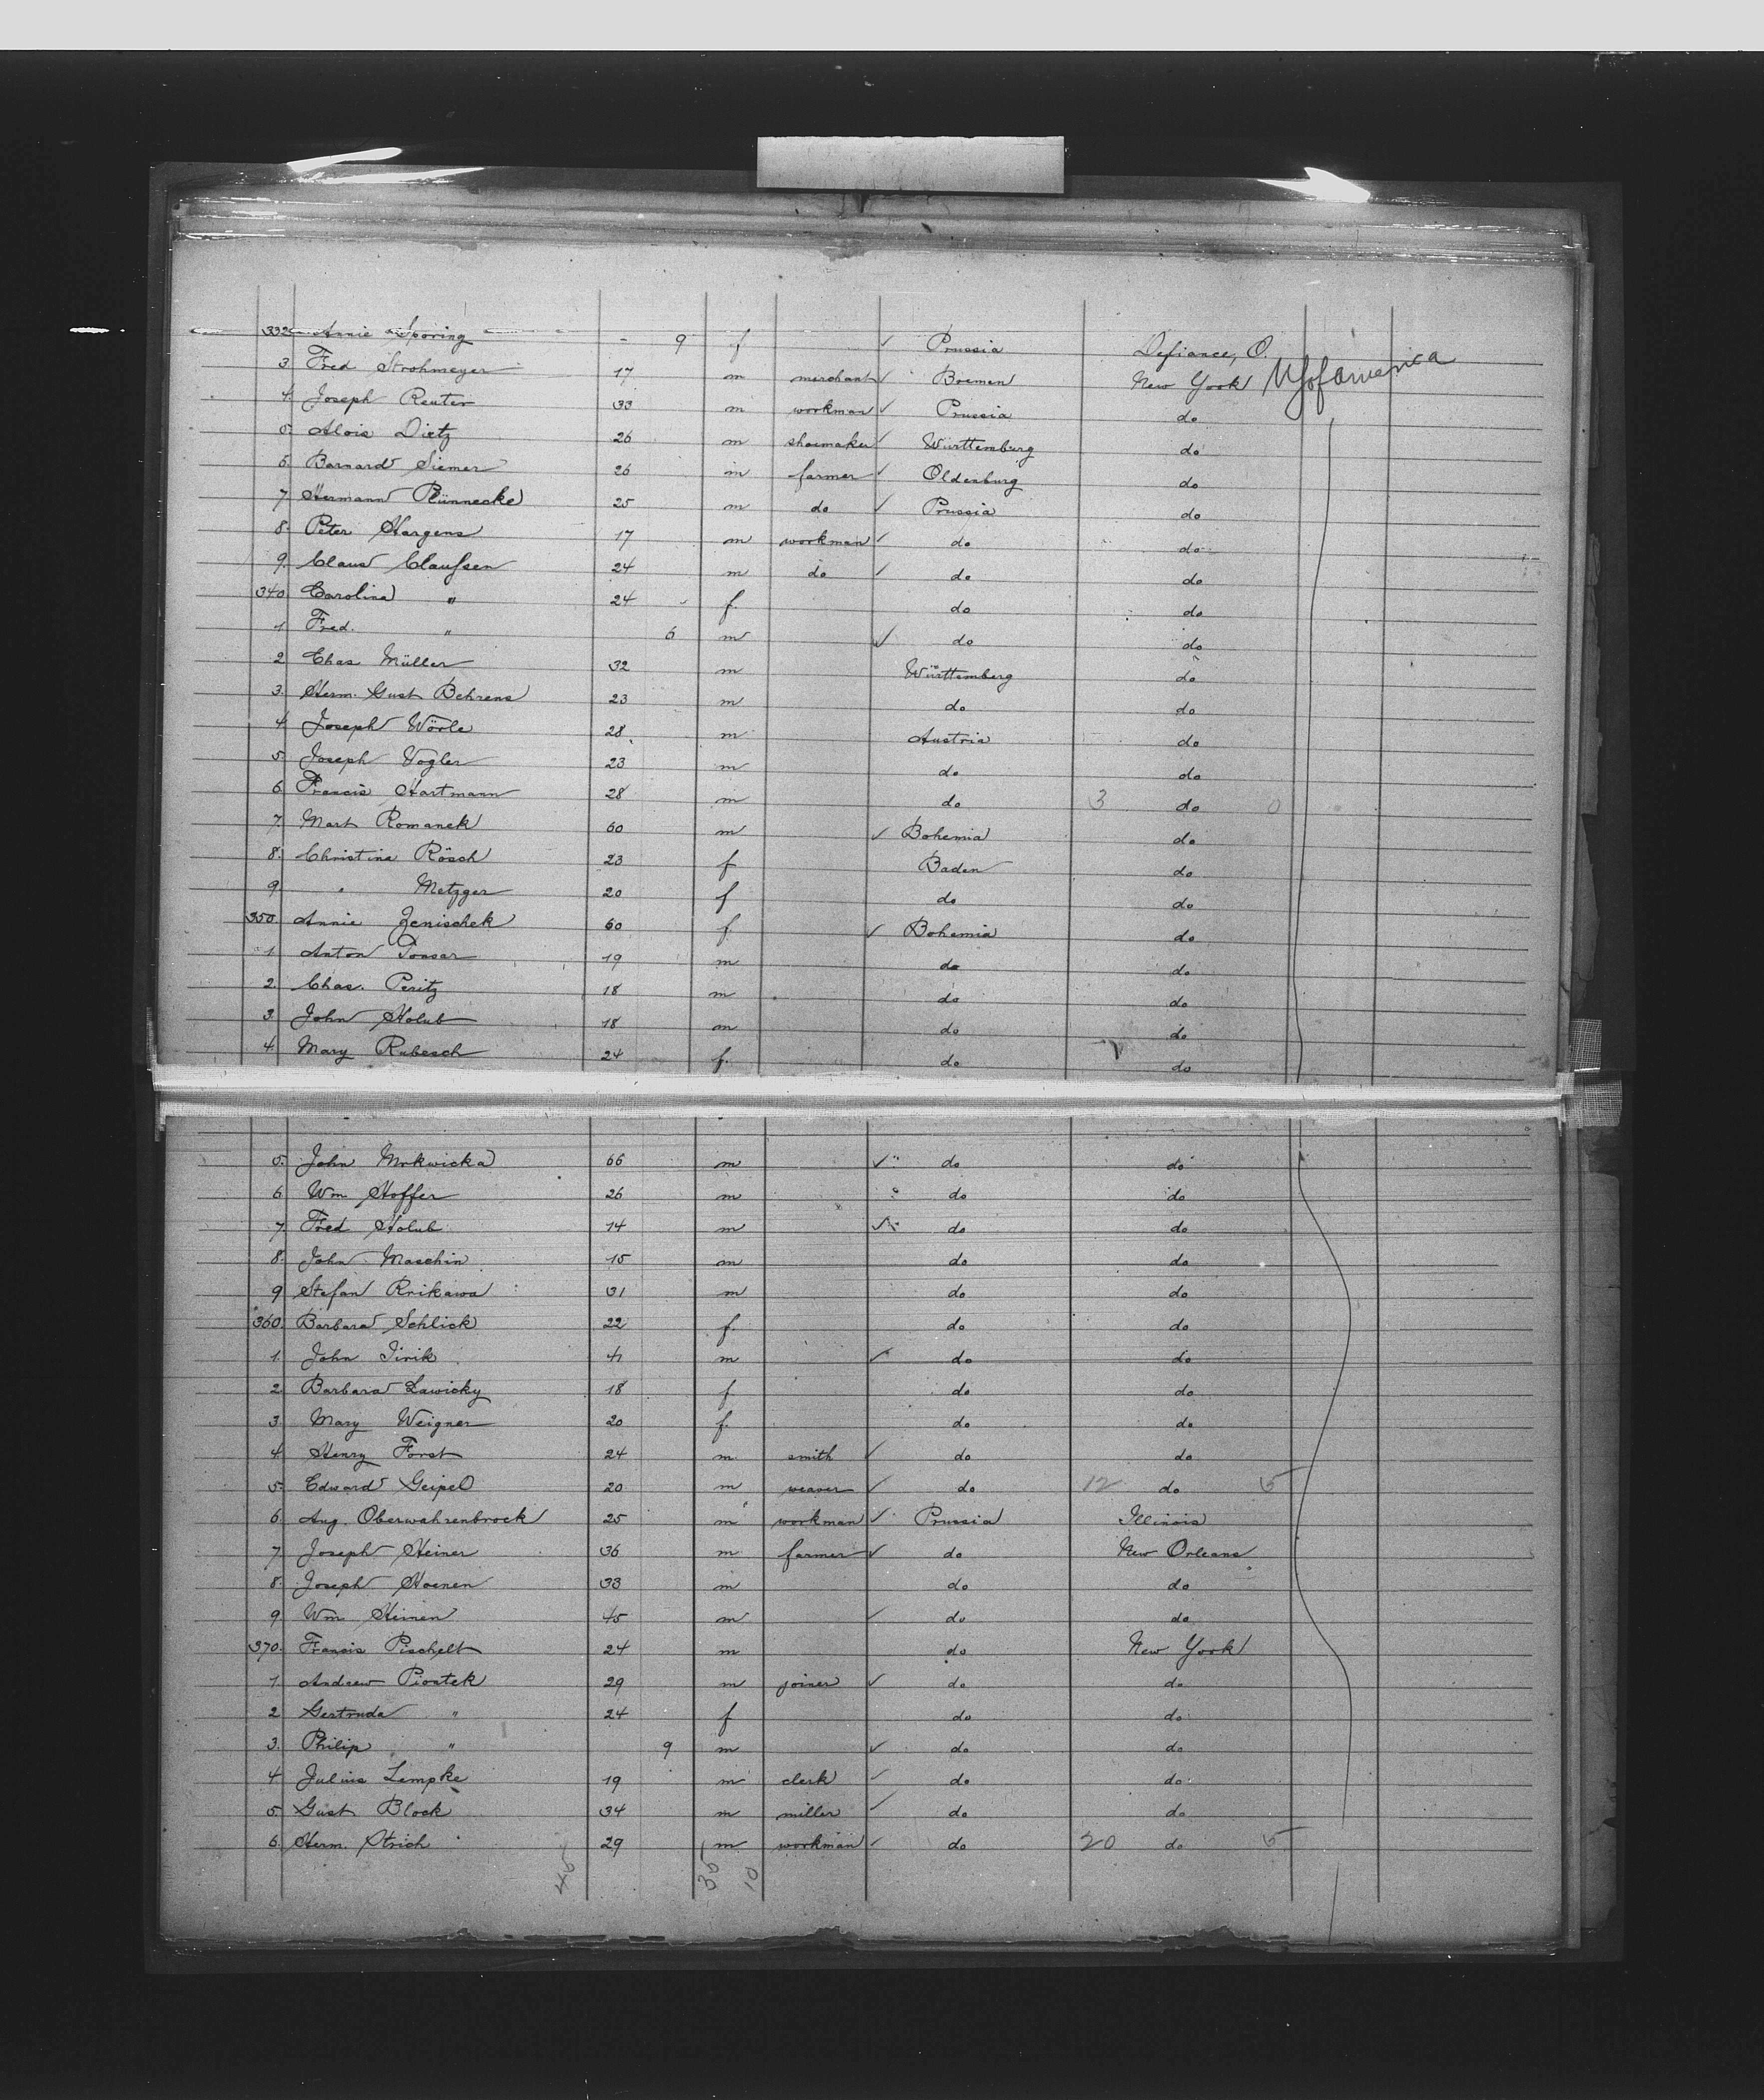 332 Annie Sporing - 9 f ✓ Prussia Defiance, O.
3. Fred Strohmeyer 17 m merchant ✓ Bremen New York U S of America
4. Joseph Reuter 33 m workman ✓ Prussia do
5. Alois Dietz 26 m shoemaker ✓ Württemburg do
6. Barnard Siemer 26 m farmer ✓ Oldenburg do
7. Hermann Rünnecke 25 m do ✓ Prussia do
8. Peter Hargens 17 m workman ✓ do do
9. Claus Claussen 24 m do ✓ do do
340 Carolina " 24 f. do do
1 Fred. " 6 m ✓ do do
2 Chas Müller 32 m Württemberg do
3. Herm. Gust Behrens 23 m do do
4 Joseph Wörle 28 m Austria do
5. Joseph Vogler 23 m do do
6. Francis Hartmann 28 m do 3 do 0
7. Mart Romanek 60 m ✓ Bohemia do
8. Christine Rösch 23 f Baden do
9 " Metzger 20 f do do
350. Annie Jenischek 60 f. ✓ Bohemia do
1. Anton 19 m do do
2. Chas. Peritz 18 m do do
3. John Holub 18 m do do
4. Mary Rubesch 24 f. do do
5. John Mrkwicka 66 m ✓ do do
6 Wm Hoffer 26 m do do
7. Fred Holub 14 m ✓ do do
8. John Maschin 15 m do do
9 Stefan 31 m do do
360. Barbara Schlick 22 f. do do
1. John Jirik 41 m ✓ do do
2 Barbara Lawicky 18 f do do
3. Mary Weigner 20 f. do do
4. Henry Forst 24 m smith ✓ do do
5. Edward Geipel 20 m weaver ✓ do 12 do 5
6. Aug. Oberwahrenbrock 25 m workman ✓ Prussia Illinois
7. Joseph Heiner 36 m farmer ✓ do New Orleans
8. Joseph Hoenen 33 m do do
9 Wm Heinen 45 m ✓ do do
370. Francis Pischelt 24 m do New York
1. Andrew Piontek 29 m joiner ✓ do do
2 Gertruda " 24 f do do
3. Philip " 9 m ✓ do do
4 Julius Lempke 19 m clerk ✓ do do
5. Gust Block 34 m miller ✓ do do
6. Herm. Strich 29 m workman ✓ do 20 do 5
45 35 10